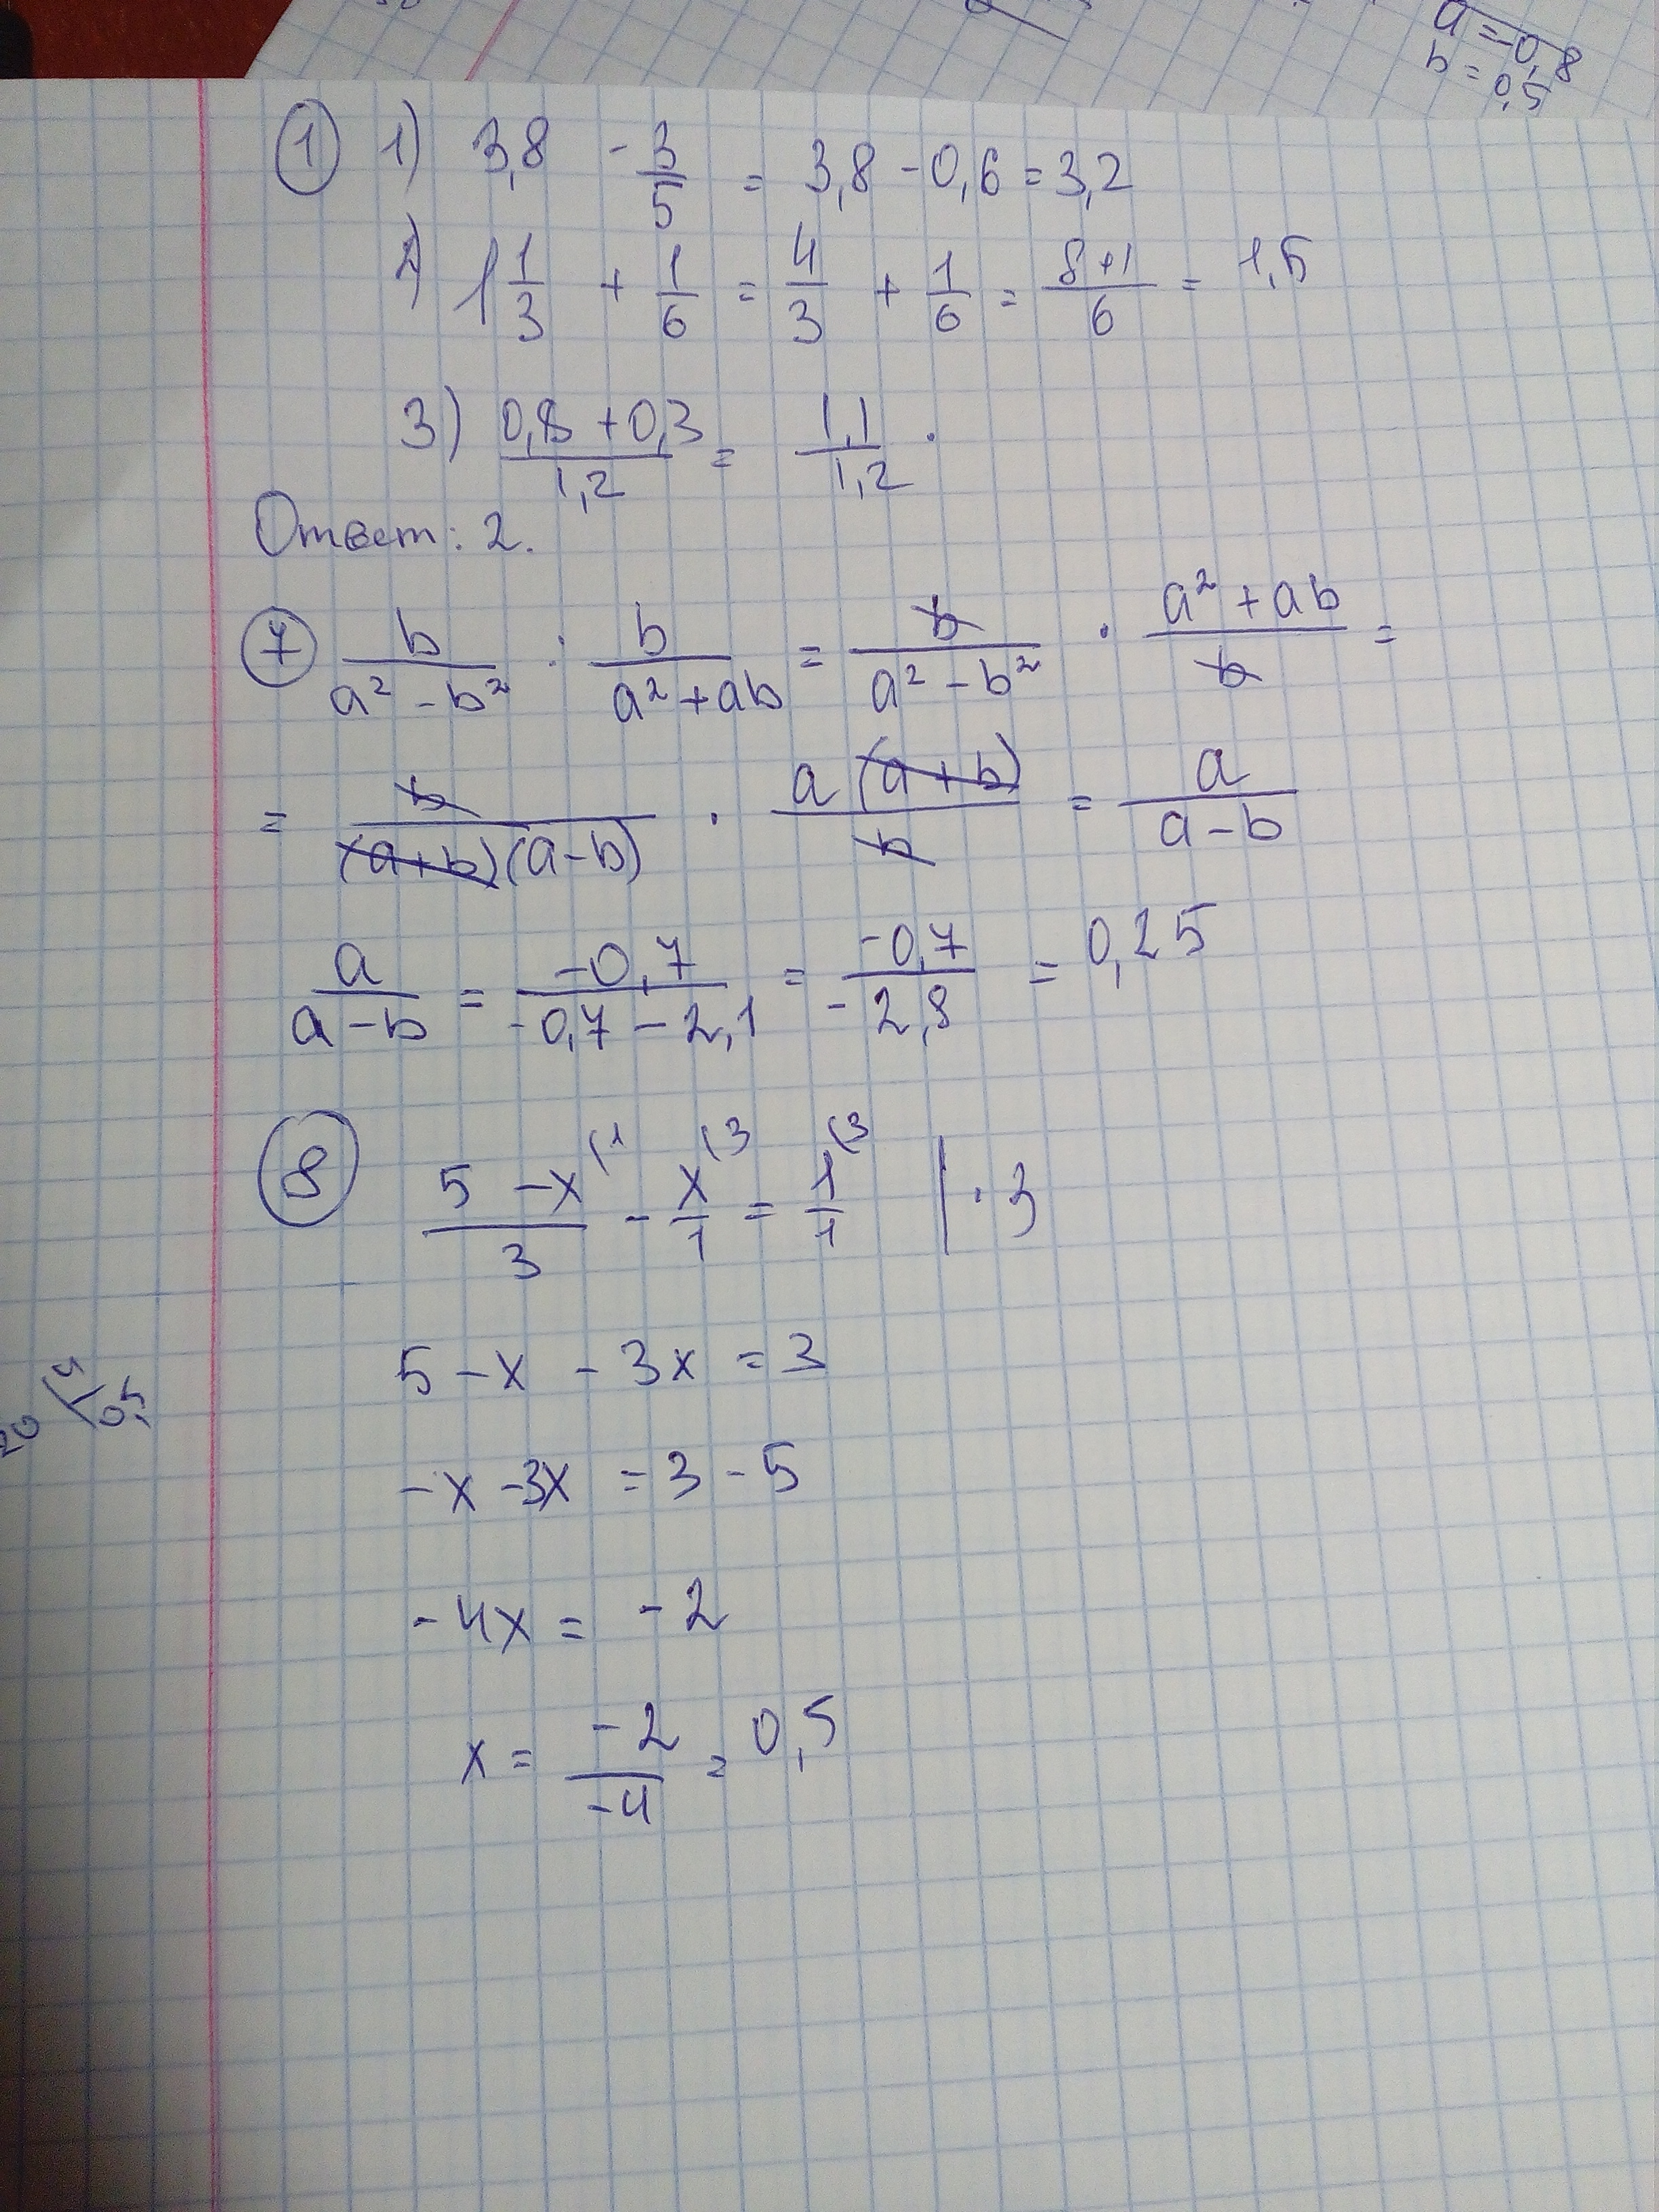 a = -0,8
b = 0,5
① 1) 3,8 - 3/5 = 3,8 - 0,6 = 3,2
2) 1 1/3 + 1/6 = 4/3 + 1/6 = (8+1)/6 = 1,5
3) (0,8 + 0,3)/1,2 = 1,1/1,2 .
Ответ: 2.
⑦ b/(a² - b²) : b/(a² + ab) = b/(a² - b²) · (a² + ab)/b =
= b/((a+b)(a-b)) · a(a+b)/b = a/(a-b)
a/(a-b) = -0,7/(-0,7-2,1) = -0,7/-2,8 = 0,25
⑧ (5-x)/3 (1 - x/1 (3 = 1/1 (3 | · 3
5 - x - 3x = 3
-x - 3x = 3 - 5
-4x = -2
x = -2/-4 = 0,5
20 4/0,5